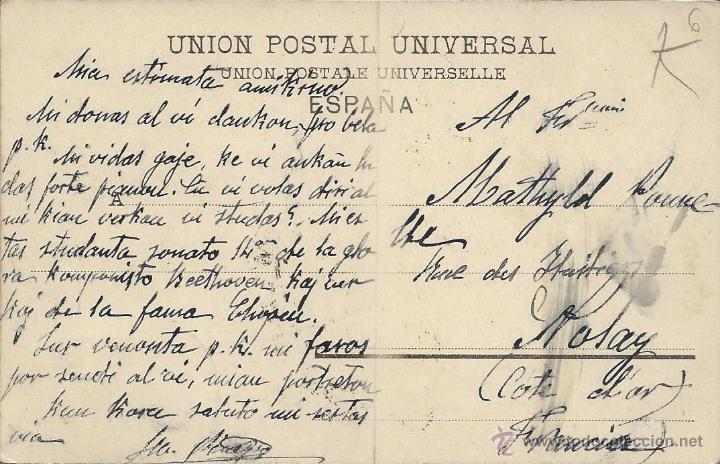 UNION POSTAL UNIVERSAL
UNION POSTALE UNIVERSELLE
ESPAÑA
6
Mia estimata amikino!
Mi donas al vi dankon, pro bela
p.k.
Mi vidas gaje, ke vi ankaŭ lu
das forte pianon. Ĉu vi volas diri al
mi kian verkon vi studas? Mi es
tas studanta sonato 14 de la glo
ra komponisto Beethoven kaj
kaj de la fama Chopin.
Sur venonta p.k. mi faros
por sendi al vi, mian portreton
Kun kora saluto mi restas
via
Al Fraŭlino
Mathyld
Rue des
Nolay
(Côte d'or)
Francia
todocoleccion.net